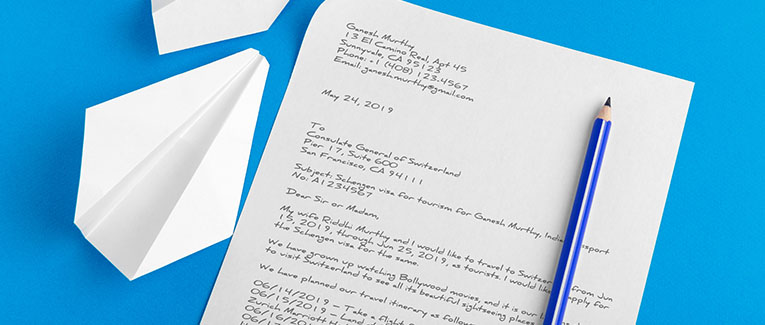 Ganesh Murthy
13 El Camino Real, Apt 45
Sunnyvale, CA 95123
Phone: +1 (408) 123-4567
Email: ganesh.murthy@gmail.com
May 24, 2019
To
Consulate General of Switzerland
Pier 17, Suite 600
San Francisco, CA 94111
Subject: Schengen visa for tourism for Ganesh Murthy, Indian Passport
No: A1234567
Dear Sir or Madam,
My wife Riddhi Murthy and I would like to travel to Switzerland from Jun
15, 2019, through Jun 25, 2019, as tourists. I would like to apply for
the Schengen visa for the same.
We have grown up watching Bollywood movies, and it is our
to visit Switzerland to see all its beautiful sightseeing places
We have planned our travel itinerary as follows
06/14/2019 - Take a flight
06/15/2019 - Land
Zurich Marriott H
06/16/201